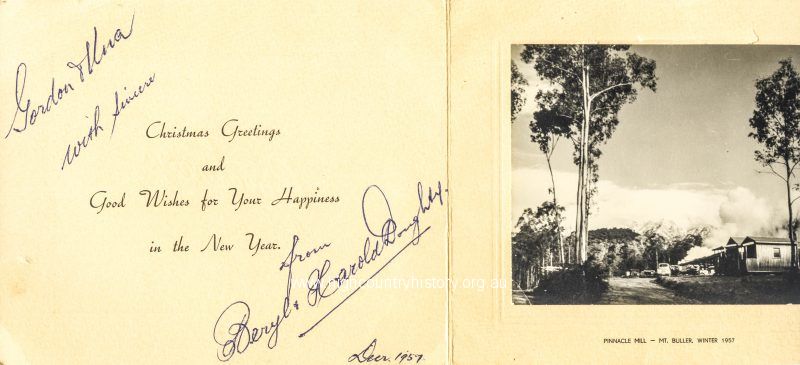 Gordon & Una
with sincere
Christmas Greetings
and
Good Wishes for Your Happiness
in the New Year.
from
Beryl & Harold Doughty.
www.highcountryhistory.org.au
Decr. 1957.
PINNACLE MILL — MT. BULLER, WINTER 1957